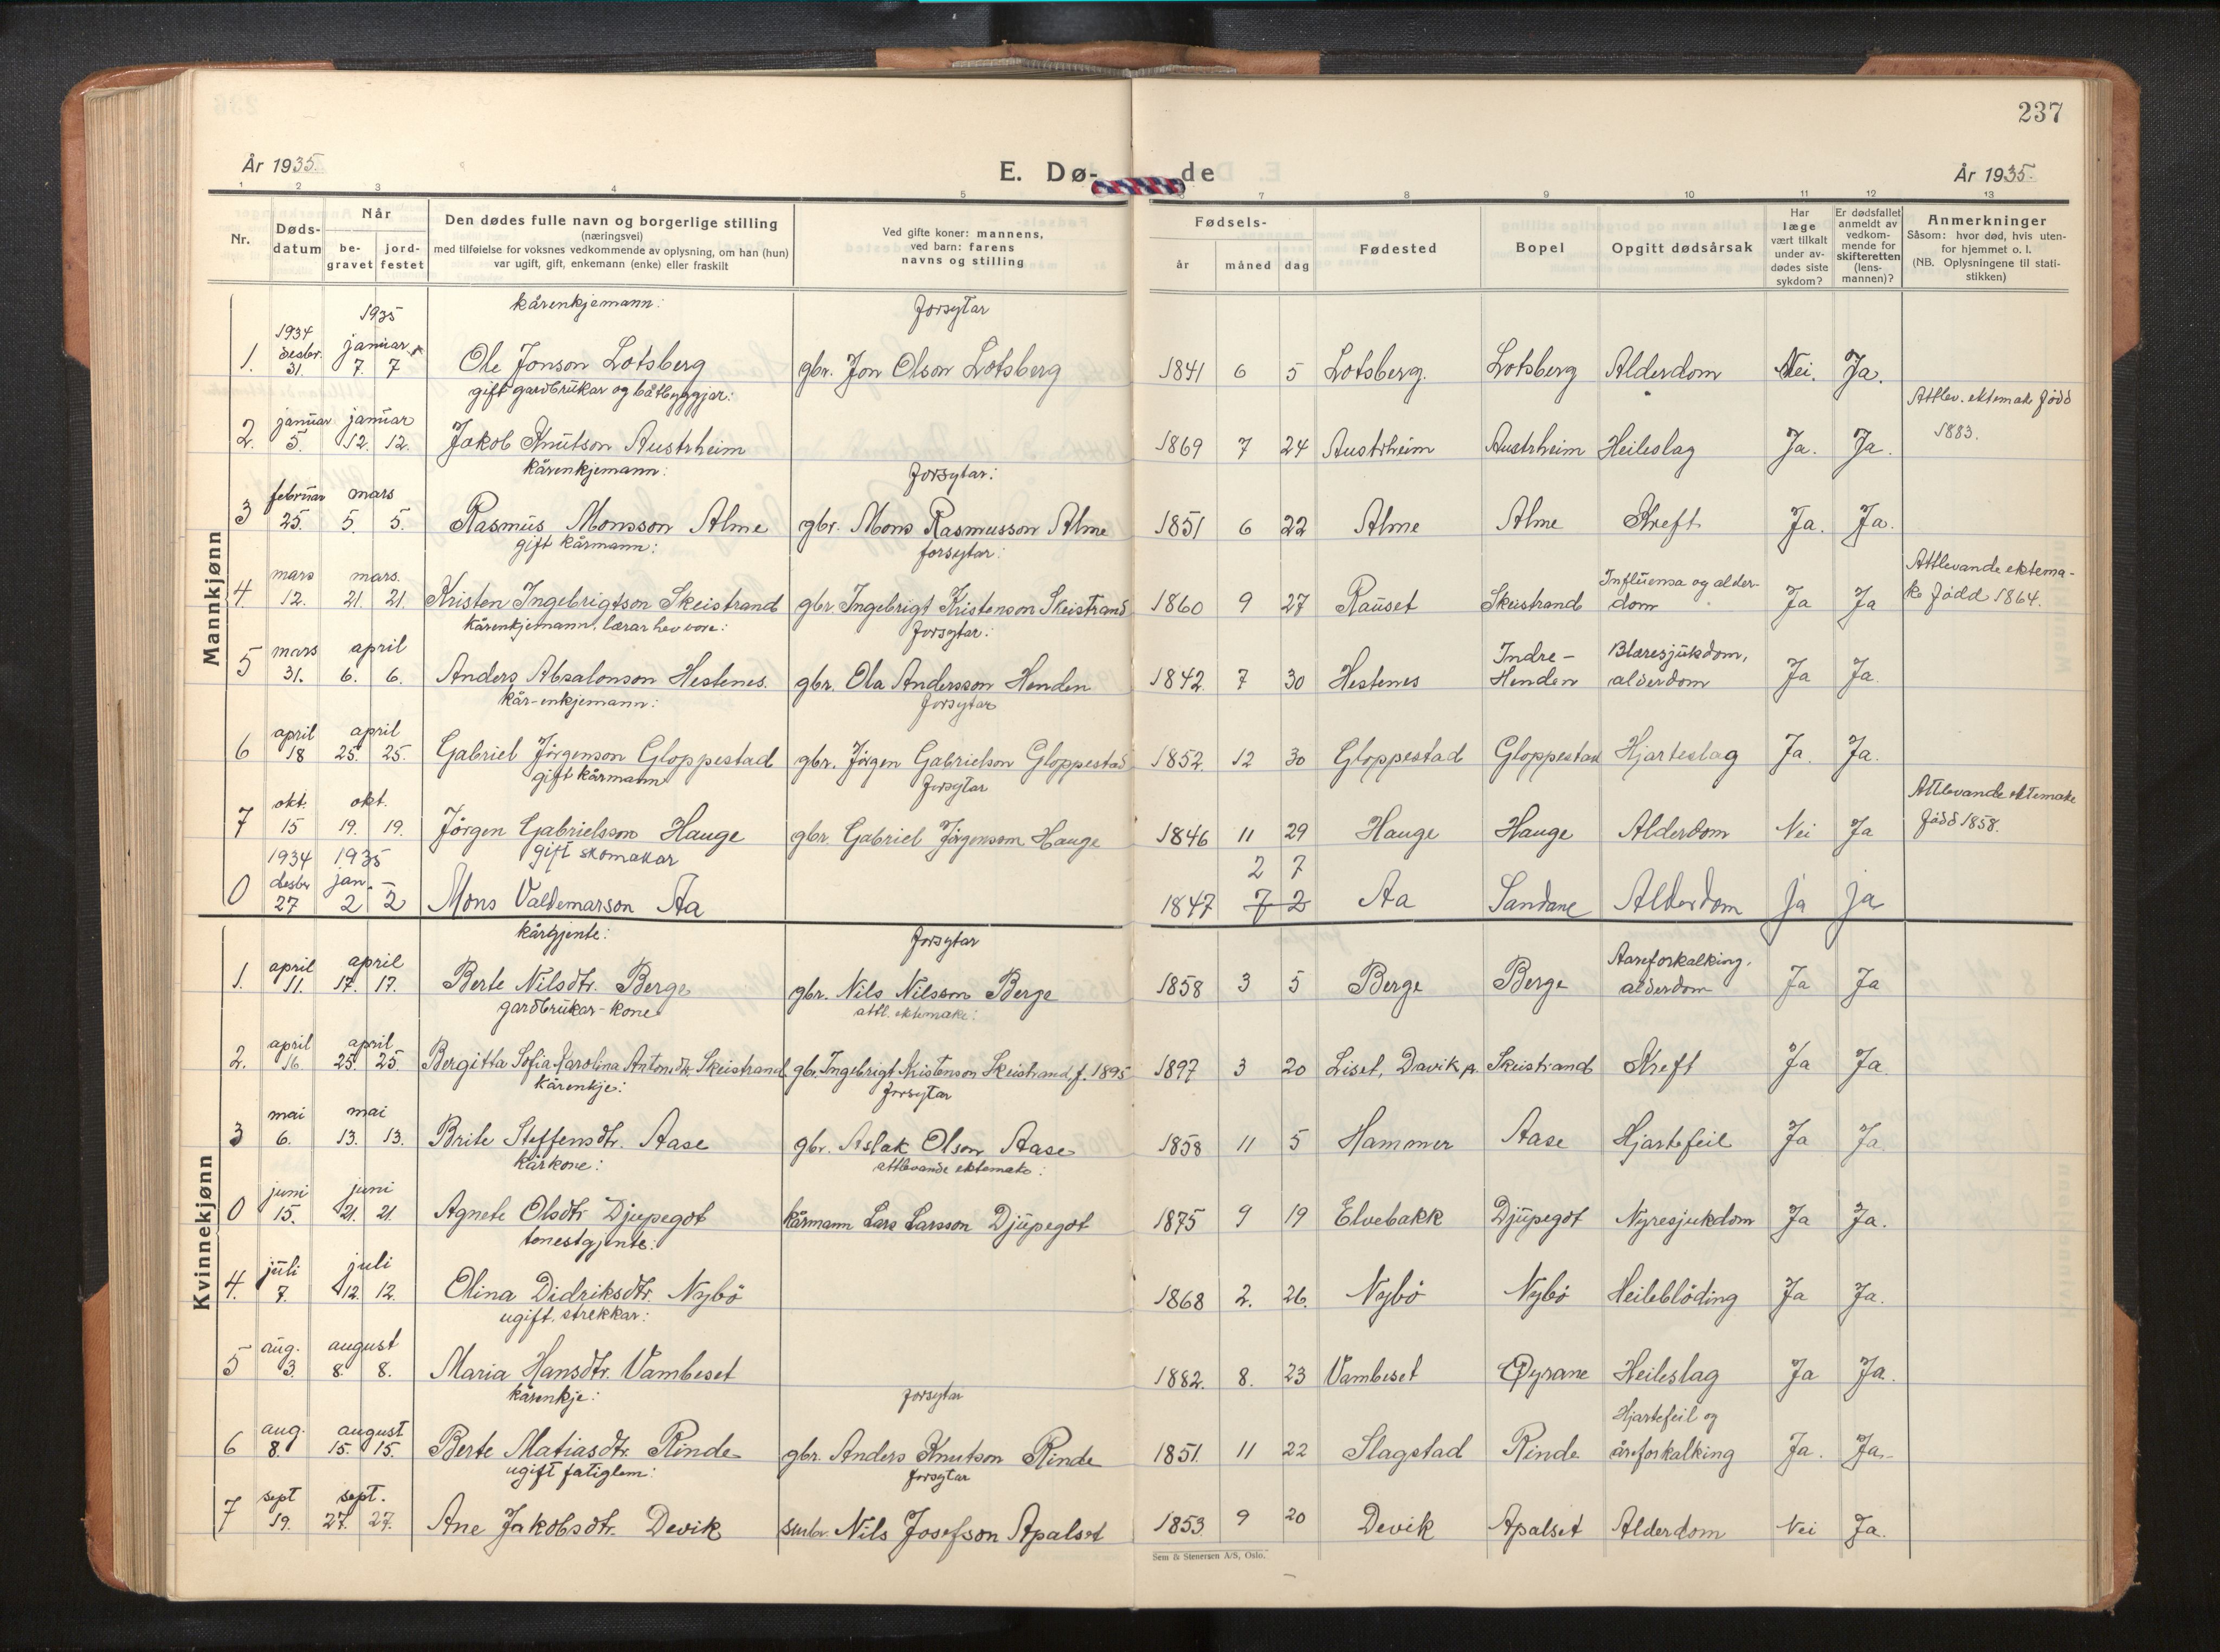 237
År 1935.
E. Dø-
de
År 1935.
1 2 3 4 5 6 7 8 9 10 11 12 13
Nr.
Døds-
datum
Når
be-
gravet
jord-
festet
Den dødes fulle navn og borgerlige stilling
(næringsvei)
med tilføielse for voksnes vedkommende av oplysning, om han (hun)
var ugift, gift, enkemann (enke) eller fraskilt
Ved gifte koner: mannens,
ved barn: farens
navns og stilling
Fødsels-
år måned dag
Fødested
Bopel
Opgitt dødsårsak
Har
læge
vært tilkalt
under av-
dødes siste
sykdom?
Er dødsfallet
anmeldt av
vedkom-
mende for
skifteretten
(lens-
mannen)?
Anmerkninger
Såsom: hvor død, hvis uten-
for hjemmet o. l.
(NB. Oplysningene til stati-
stikken)
Mannkjønn
1935 kårenkjemann: Forsytar
1934
desbr. januar
1. 31. 7. 7 Ole Jonson Lotsberg gbr. Jon Olson Lotsberg 1841 6 5 Lotsberg. Lotsberg Alderdom Nei. Ja.
gift gardbrukar og båtbyggjar: Attlev. ektemake fødd
januar januar
2. 5. 12. 12. Jakob Knutson Austrheim 1869 7 24 Austrheim Austrheim Heileslag Ja. Ja. 1883.
kårenkjemann: Forsytar:
februar mars
3 25. 5. 5. Rasmus Monsson Alme gbr. Mons Rasmusson Alme 1851 6 22 Alme Alme Kreft Ja. Ja.
gift kårmann: forsytar:
mars mars. Influensa og alder- Attlevande ektema-
4. 12. 21. 21. Kristen Ingebrigtson Skeistrand gbr. Ingebrigt Kristenson Skeistrand 1860 9 27 Rauset Skeistrand dom Ja Ja ke fødd 1864.
kårenkjemann, lærar hev vore: Forsytar:
mars april Indre- Blæresjukdom,
5 31. 6. 6. Anders Absalonson Hestenes. gbr. Ola Andersson Henden 1842 7 30 Hestenes Henden alderdom Ja Ja.
kår-enkjemann: Forsytar
april april
6 18 25. 25. Gabriel Jørgenson Gloppestad gbr. Jørgen Gabrielson Gloppestad 1852 12 30 Gloppestad Gloppestad Hjarteslag Ja. Ja.
gift kårmann Forsytar
okt. okt. Attlevande ektemake
7 15 19. 19. Jørgen Gabrielsson Hauge gbr. Gabriel Jørgensson Hauge 1846 11 29 Hauge Hauge Alderdom Nei Ja fødd 1858.
1934 1935 gift skomakar 2 7
desbr jan.
0 27 2 2 Mons Valdemarson Aa 1847 7 2 Aa Sandane Alderdom ja ja
Kvinnekjønn
kårgjente: Forsytar
april april Aareforkalking,
1. 11. 17. 17. Berte Nilsdtr. Berge gbr. Nils Nilsson Berge 1858 3 5 Berge Berge alderdom Ja Ja
gardbrukar-kone attl. ektemake:
april april
2. 16 25. 25. Bergitta Sofia Karolina Antonsdtr. Skeistrand gbr. Ingebrigt Kristenson Skeistrand f. 1895 1897 3 20 Liset, Davik p. Skeistrand Kreft Ja Ja.
kårenkje: Forsytar
mai mai
3 6. 13. 13. Brite Steffensdtr. Aase gbr. Aslak Olson Aase 1858 11 5 Hammer Aase Hjartefeil Ja Ja
kårkone: attlevande ektemake:
juni juni
0 15. 21. 21. Agnete Olsdtr Djupegot kårmann Lars Larsson Djupegot 1875 9 19 Elvebakk Djupegot Nyresjukdom Ja Ja.
tenestgjente:
juli juli
4. 7. 12. 12. Olina Didriksdtr. Nybö 1868 2. 26. Nybö Nybö Heileblöding Ja Ja.
ugift. strekkar:
aug. august
5 3. 8. 8. Maria Hansdtr. Vambeset 1882. 8. 23 Vambeset Øyrane Heileslag Ja Ja.
kårenkje: forsytar
aug. august Hjartefeil og
6 8. 15. 15. Berte Matiasdtr. Rinde gbr. Anders Knutson Rinde 1851. 11 22 Slagstad Rinde åreforkalking Ja. Ja.
ugift fatiglem: forsytar
sept sept.
7 19. 27. 27. Ane Jakobsdtr. Devik smbr. Nils Josefson Apalset 1853. 9 20 Devik Apalset Alderdom Nei Ja.
Sem & Stenersen A/S, Oslo.